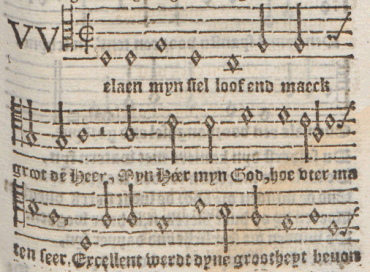 VV
elaen myn siel loof end maeck
groot dē Heer, Myn Heer myn God, hoe vter ma
ten seer. Excellent werdt dyne grootheyt beuon